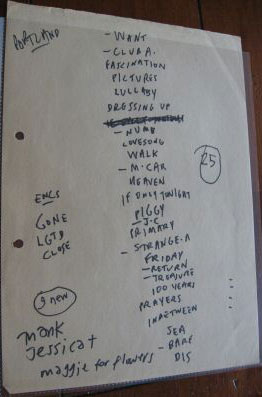 PORTLAND
- WANT
- CLUB A.
FASCINATION
PICTURES
LULLABY
DRESSING UP
- NUMB
LOVESONG
WALK
25
- M. CAR
HEAVEN
IF ONLY TONIGHT
ENCS
PIGGY
- J.C
GONE
PRIMARY
LGTD
- STRANGE. A
CLOSE
FRIDAY
- RETURN
- TREASURE
9 new
100 YEARS
PRAYERS
INBETWEEN
mark
SEA
Jessicat
- BARE
maggie for flowers
DIS